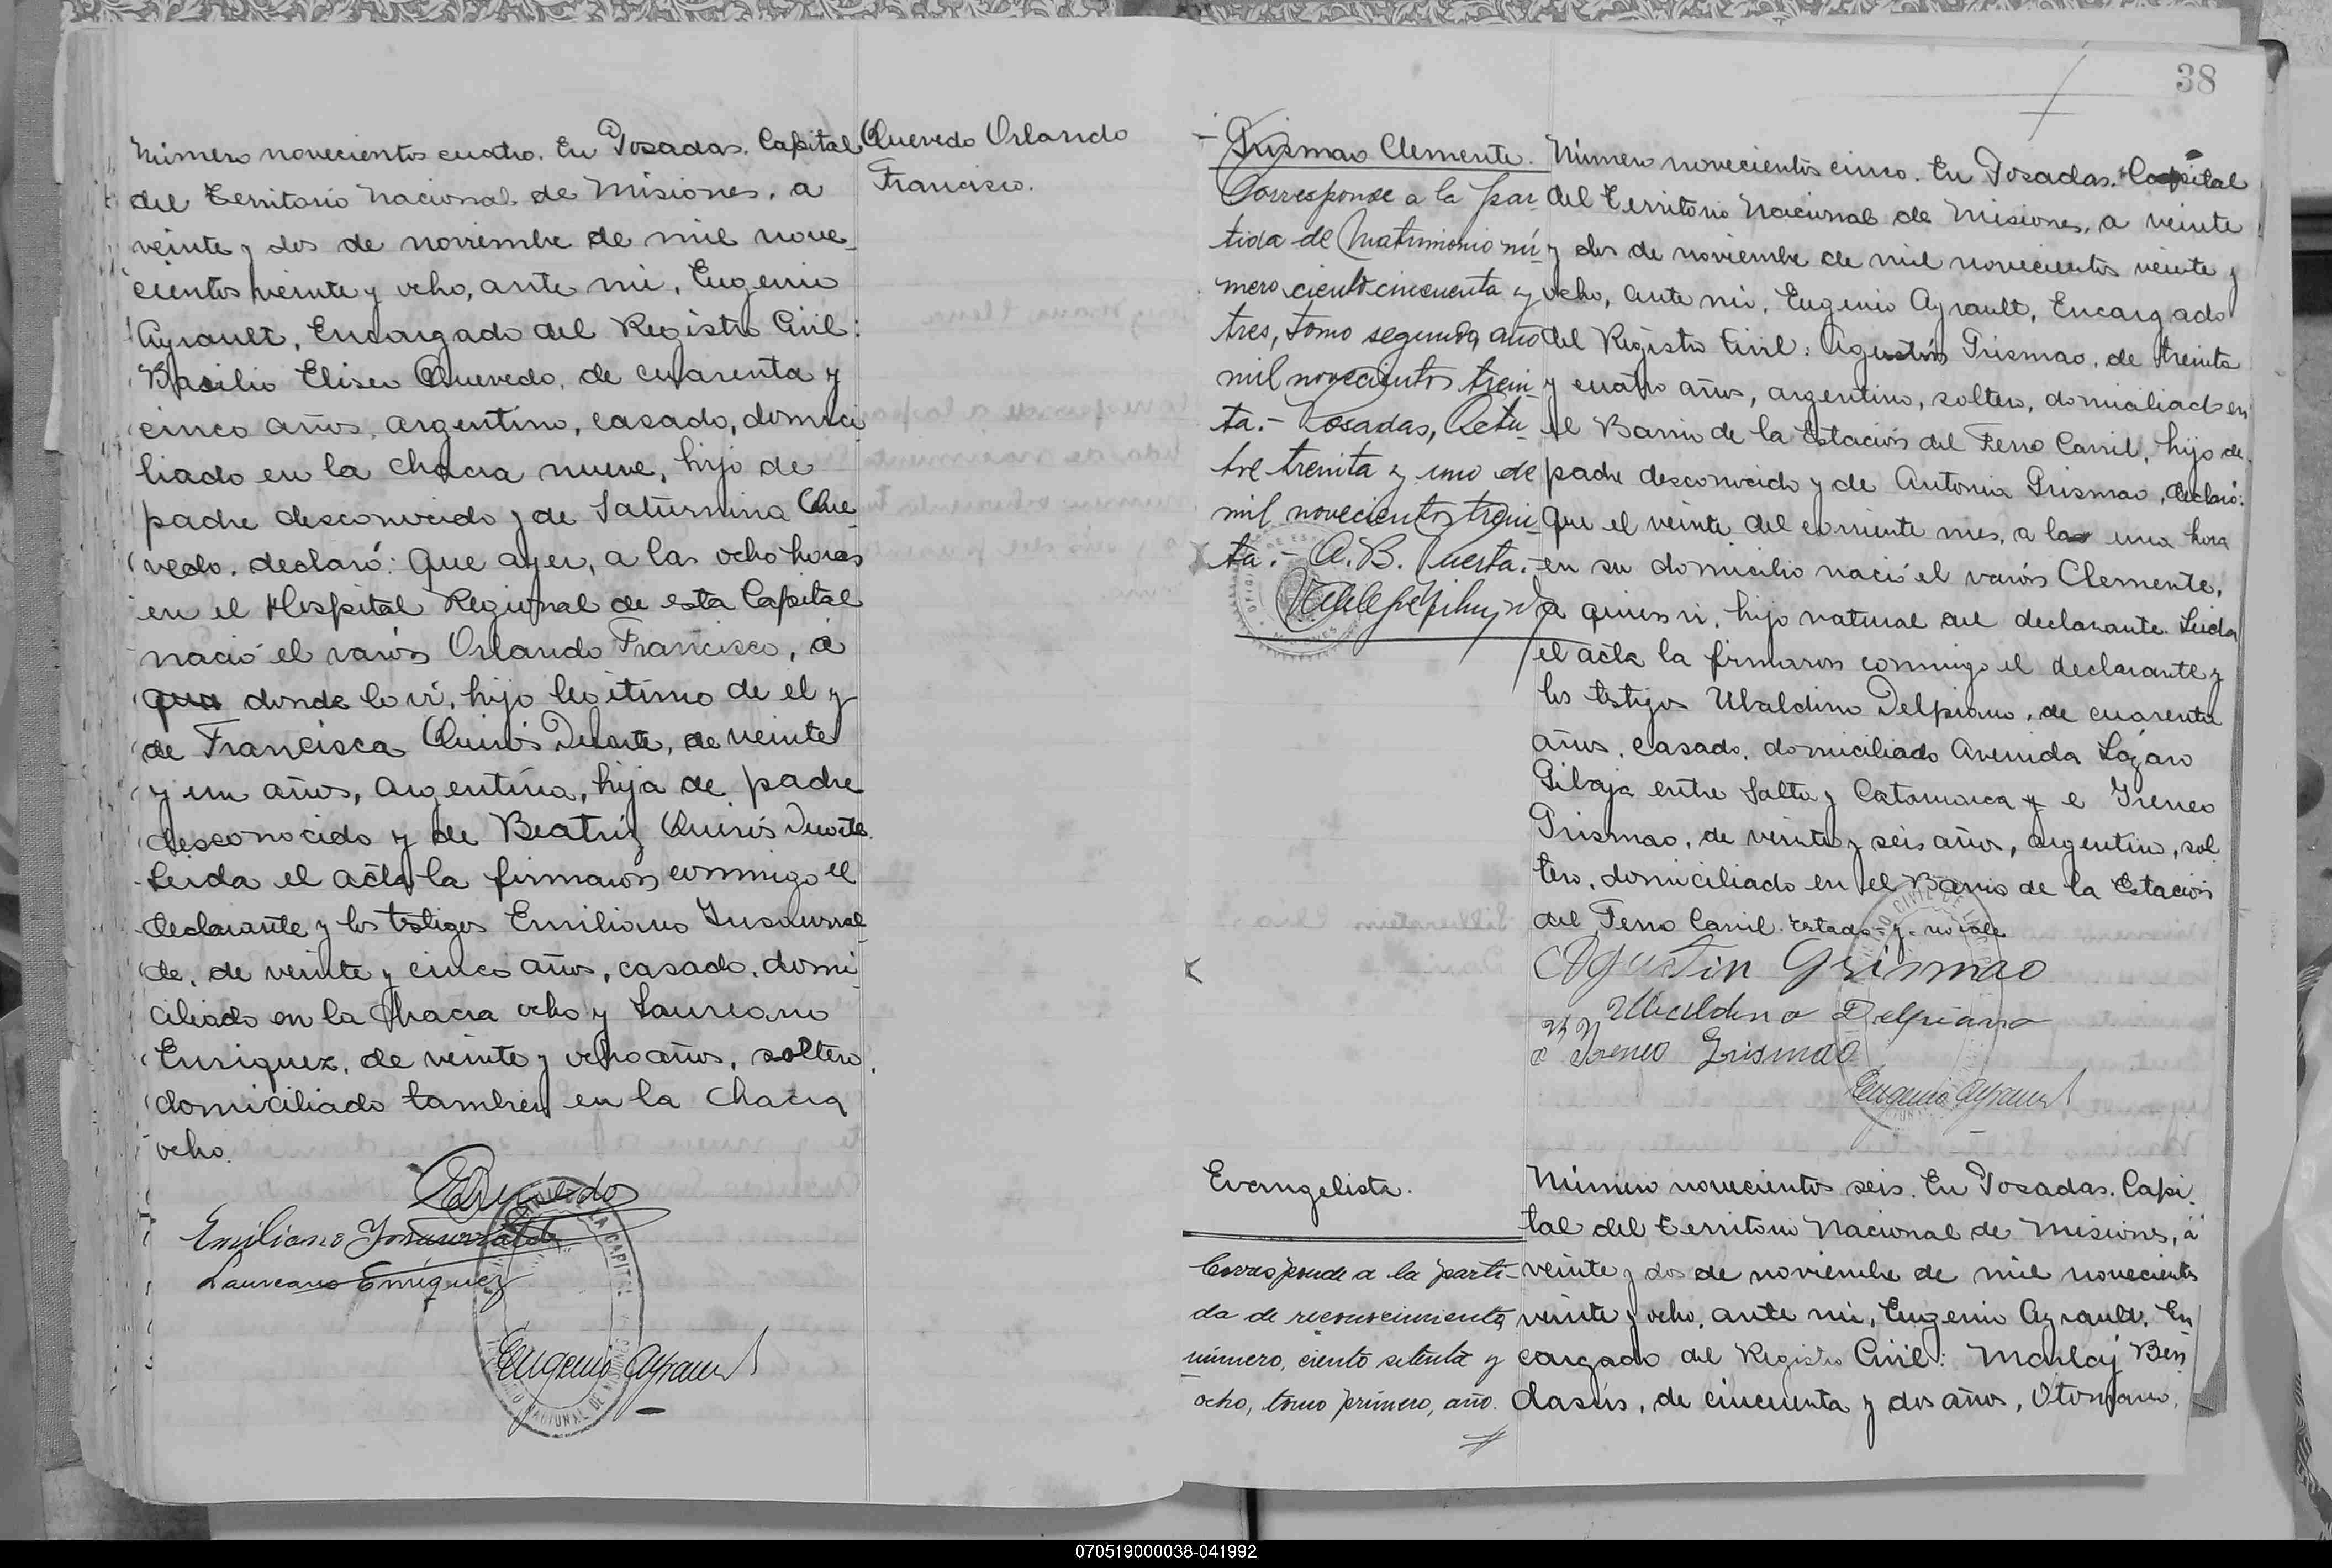 Número novecientos cuatro. En Posadas. Capital
del Territorio Nacional de Misiones, a
veinte y dos de noviembre de mil nove-
cientos veinte y ocho, ante mi, Eugenio
Ayrault, Encargado del Registro Civil:
Basilio Eliseo Quevedo, de cuarenta y
cinco años, argentino, casado, domici
liado en la chacra nueve, hijo de
padre desconocido y de Saturnina Que-
vedo, declaró: Que ayer, a las ocho horas
en el Hospital Regional de esta Capital
nació el varón Orlando Francisco, a
donde lo ví, hijo legítimo de el y
de Francisca Quirós Duarte, de veinte
y un años, argentina, hija de padre
desconocido y de Beatriz Quirós Duarte.
Leida el acta la firmaron conmigo el
declarante y los testigos Emiliano Insaurral-
de, de veinte y cinco años, casado, domi-
ciliado en la Chacra ocho y Laureano
Enriquez, de veinte y ocho años, soltero,
domiciliado tambien en la Chacra
ocho.
Quevedo
Emiliano Insaurralde
Laureano Enriquez
Eugenio Ayrault
Quevedo Orlando
Francisco.
38
Grismao Clemente.
Corresponde a la par-
tida de Matrimonio nú-
mero ciento cincuenta y
tres, tomo segundo, año
mil novecientos trein-
ta.- Posadas, Octu-
bre treinta y uno de
mil novecientos trein-
ta.- A. B. Puerta.-
Número novecientos cinco. En Posadas. Capital
del Territorio Nacional de Misiones, a veinte
y dos de noviembre de mil novecientos veinte y
ocho, ante mi, Eugenio Ayrault, Encargado
del Registro Civil: Agustín Grismao, de treinta
y cuatro años, argentino, soltero, domiciliado en
el Barrio de la Estación del Ferro Carril, hijo de
padre desconocido y de Antonia Grismao, declaró:
Que el veinte del corriente mes, a la una hora
en su domicilio nació el varón Clemente,
a quien ví, hijo natural del declarante. Leida
el acta la firmaron conmigo el declarante y
los testigos Ubaldino Delpiano, de cuarenta
años, casado, domiciliado Avenida Lázaro
Gibaja entre Salta y Catamarca y e Ireneo
Grismao, de veinte y seis años, argentino, sol
tero, domiciliado en el Barrio de la Estación
del Ferro Carril. Testado: y. no vale
Agustin Grismao
Ubaldino Delpiano
Ireneo Grismao
Eugenio Ayrault
Evangelista.
Corresponde a la parti-
da de reconocimiento
número, ciento setenta y
ocho, tomo primero, año.
Número novecientos seis. En Posadas. Capi-
tal del Territorio Nacional de Misiones, a
veinte y dos de noviembre de mil novecientos
veinte y ocho, ante mi, Eugenio Ayrault, En
cargado del Registro Civil: Ben
de cincuenta y dos años, Otomano,
070519000038-041992